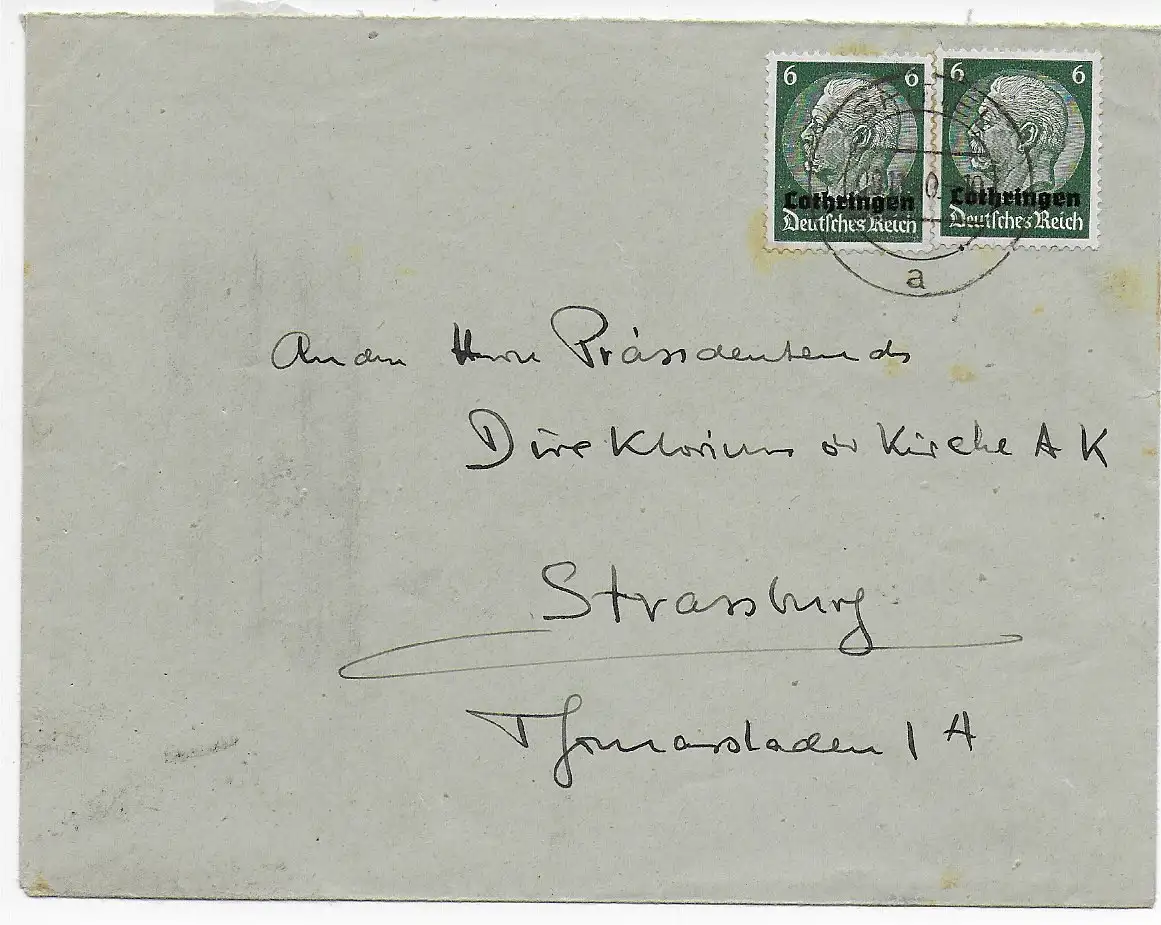 6 6 6 6
Lothringen Lothringen
Deutsches Reich Deutsches Reich
a
An den Herrn Präsidenten ds
Direktoriums dr Kirche A K
Strassburg
Thomasstaden 1 A